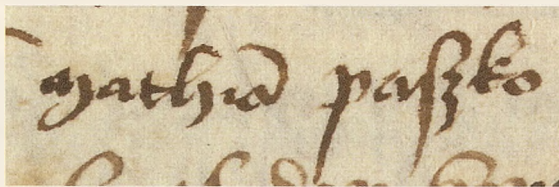 mathiā paszko